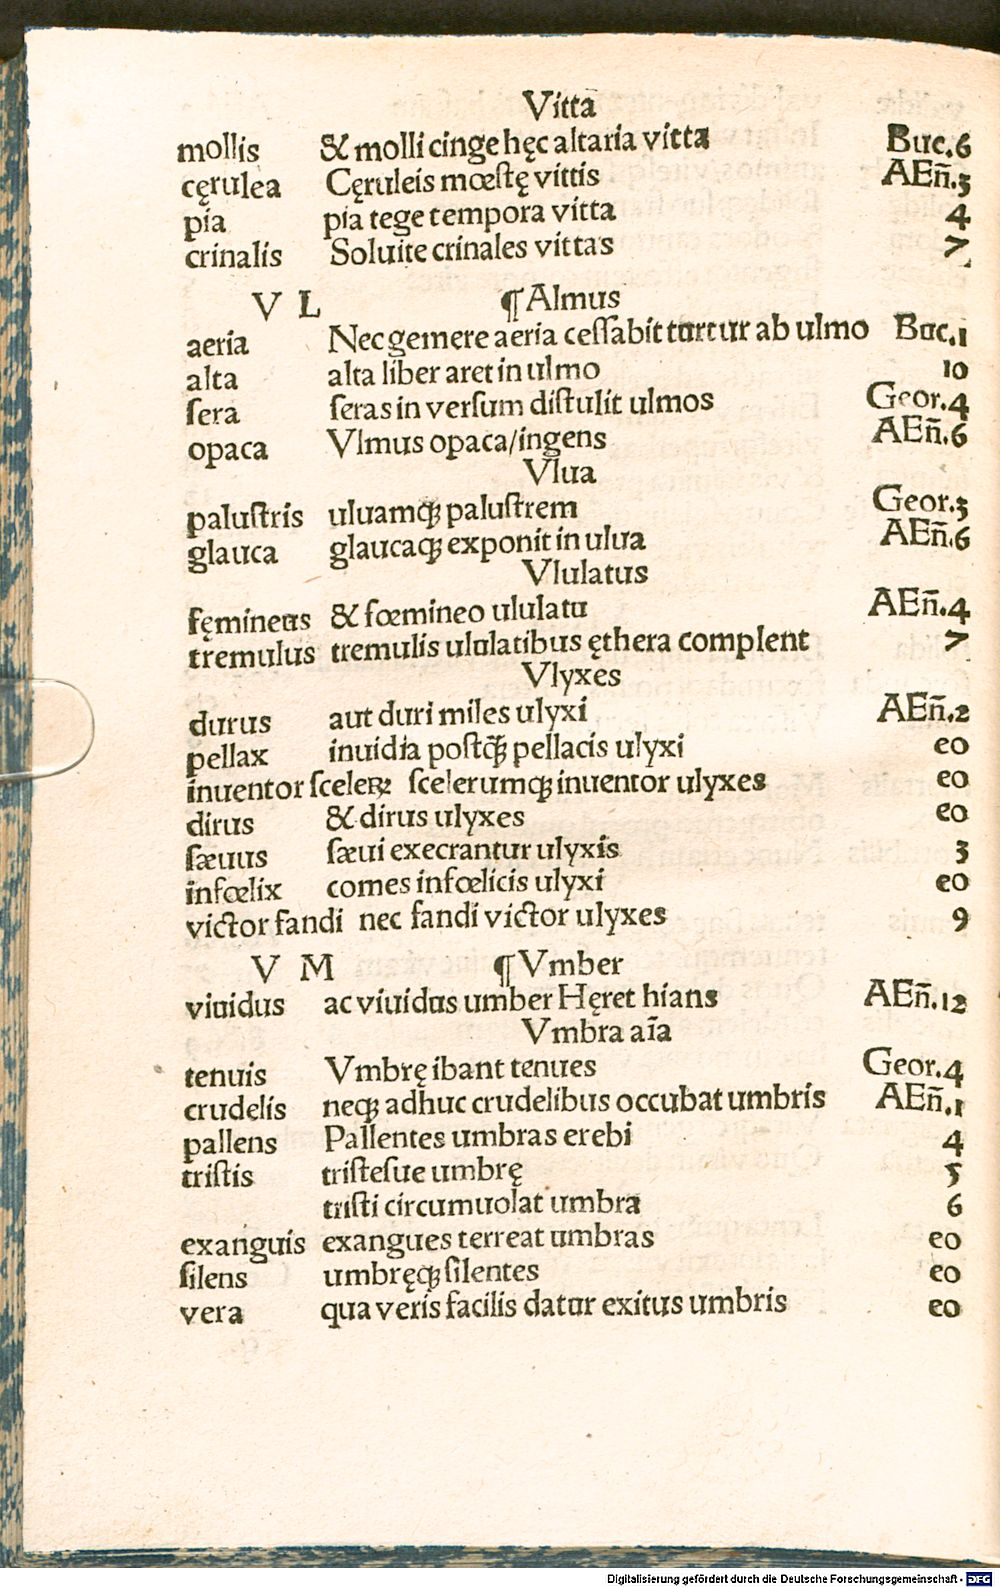 Vitta
mollis & molli cinge hęc altaria vitta Buc.6
cęrulea Cęruleis mœstę vittis AEn̄.3
pia pia tege tempora vitta 4
crinalis Soluite crinales vittas 7
V L ¶Almus
aeria Nec gemere aeria cessabit turtur ab ulmo Buc.1
alta alta liber aret in ulmo 10
sera seras in versum distulit ulmos Geor.4
opaca Vlmus opaca/ingens AEn̄.6
Vlua
palustris uluamqꝫ palustrem Geor.3
glauca glaucaqꝫ exponit in ulua AEn̄.6
Vlulatus
fęmineus & fœmineo ululatu AEn̄.4
tremulus tremulis ululatibus ęthera complent 7
Vlyxes
durus aut duri miles ulyxi AEn̄.2
pellax inuidia postqꝫ̄ pellacis ulyxi eo
inuentor sceleꝝ: scelerumqꝫ inuentor ulyxes eo
dirus & dirus ulyxes eo
sæuus sæui execrantur ulyxis 3
infœlix comes infœlicis ulyxi eo
victor fandi nec fandi victor ulyxes 9
V M ¶Vmber
viuidus ac viuidus umber Hęret hians AEn̄.12
Vmbra aīa
tenuis Vmbrę ibant tenues Geor.4
crudelis neqꝫ adhuc crudelibus occubat umbris AEn̄.1
pallens Pallentes umbras erebi 4
tristis tristesue umbrę 5
tristi circumuolat umbra 6
exanguis exangues terreat umbras eo
silens umbręqꝫ silentes eo
vera qua veris facilis datur exitus umbris eo
Digitalisierung gefördert durch die Deutsche Forschungsgemeinschaft - DFG